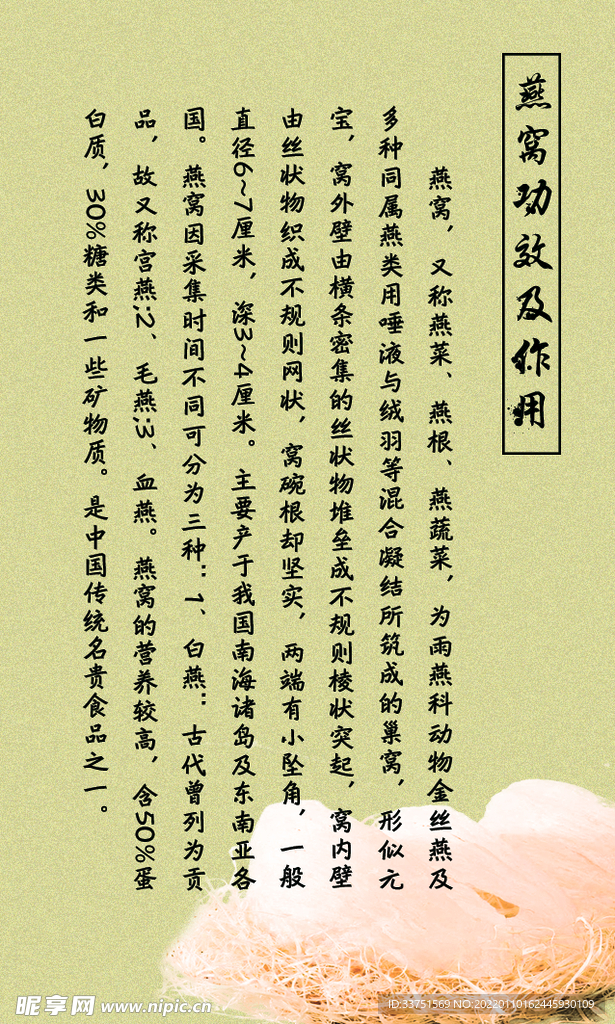 燕窝功效及作用
燕窝，又称燕菜、燕根、燕蔬菜，为雨燕科动物金丝燕及
多种同属燕类用唾液与绒羽等混合凝结所筑成的巢窝，形似元
宝，窝外壁由横条密集的丝状物堆垒成不规则棱状突起，窝内壁
由丝状物织成不规则网状，窝碗根却坚实，两端有小坠角，一般
直径6~7厘米，深3~4厘米。主要产于我国南海诸岛及东南亚各
国。燕窝因采集时间不同可分为三种：1、白燕：古代曾列为贡
品，故又称宫燕;2、毛燕;3、血燕。燕窝的营养较高，含50%蛋
白质，30%糖类和一些矿物质。是中国传统名贵食品之一。
昵享网 www.nipic.cn
ID:33751569 NO:20220110162445930109